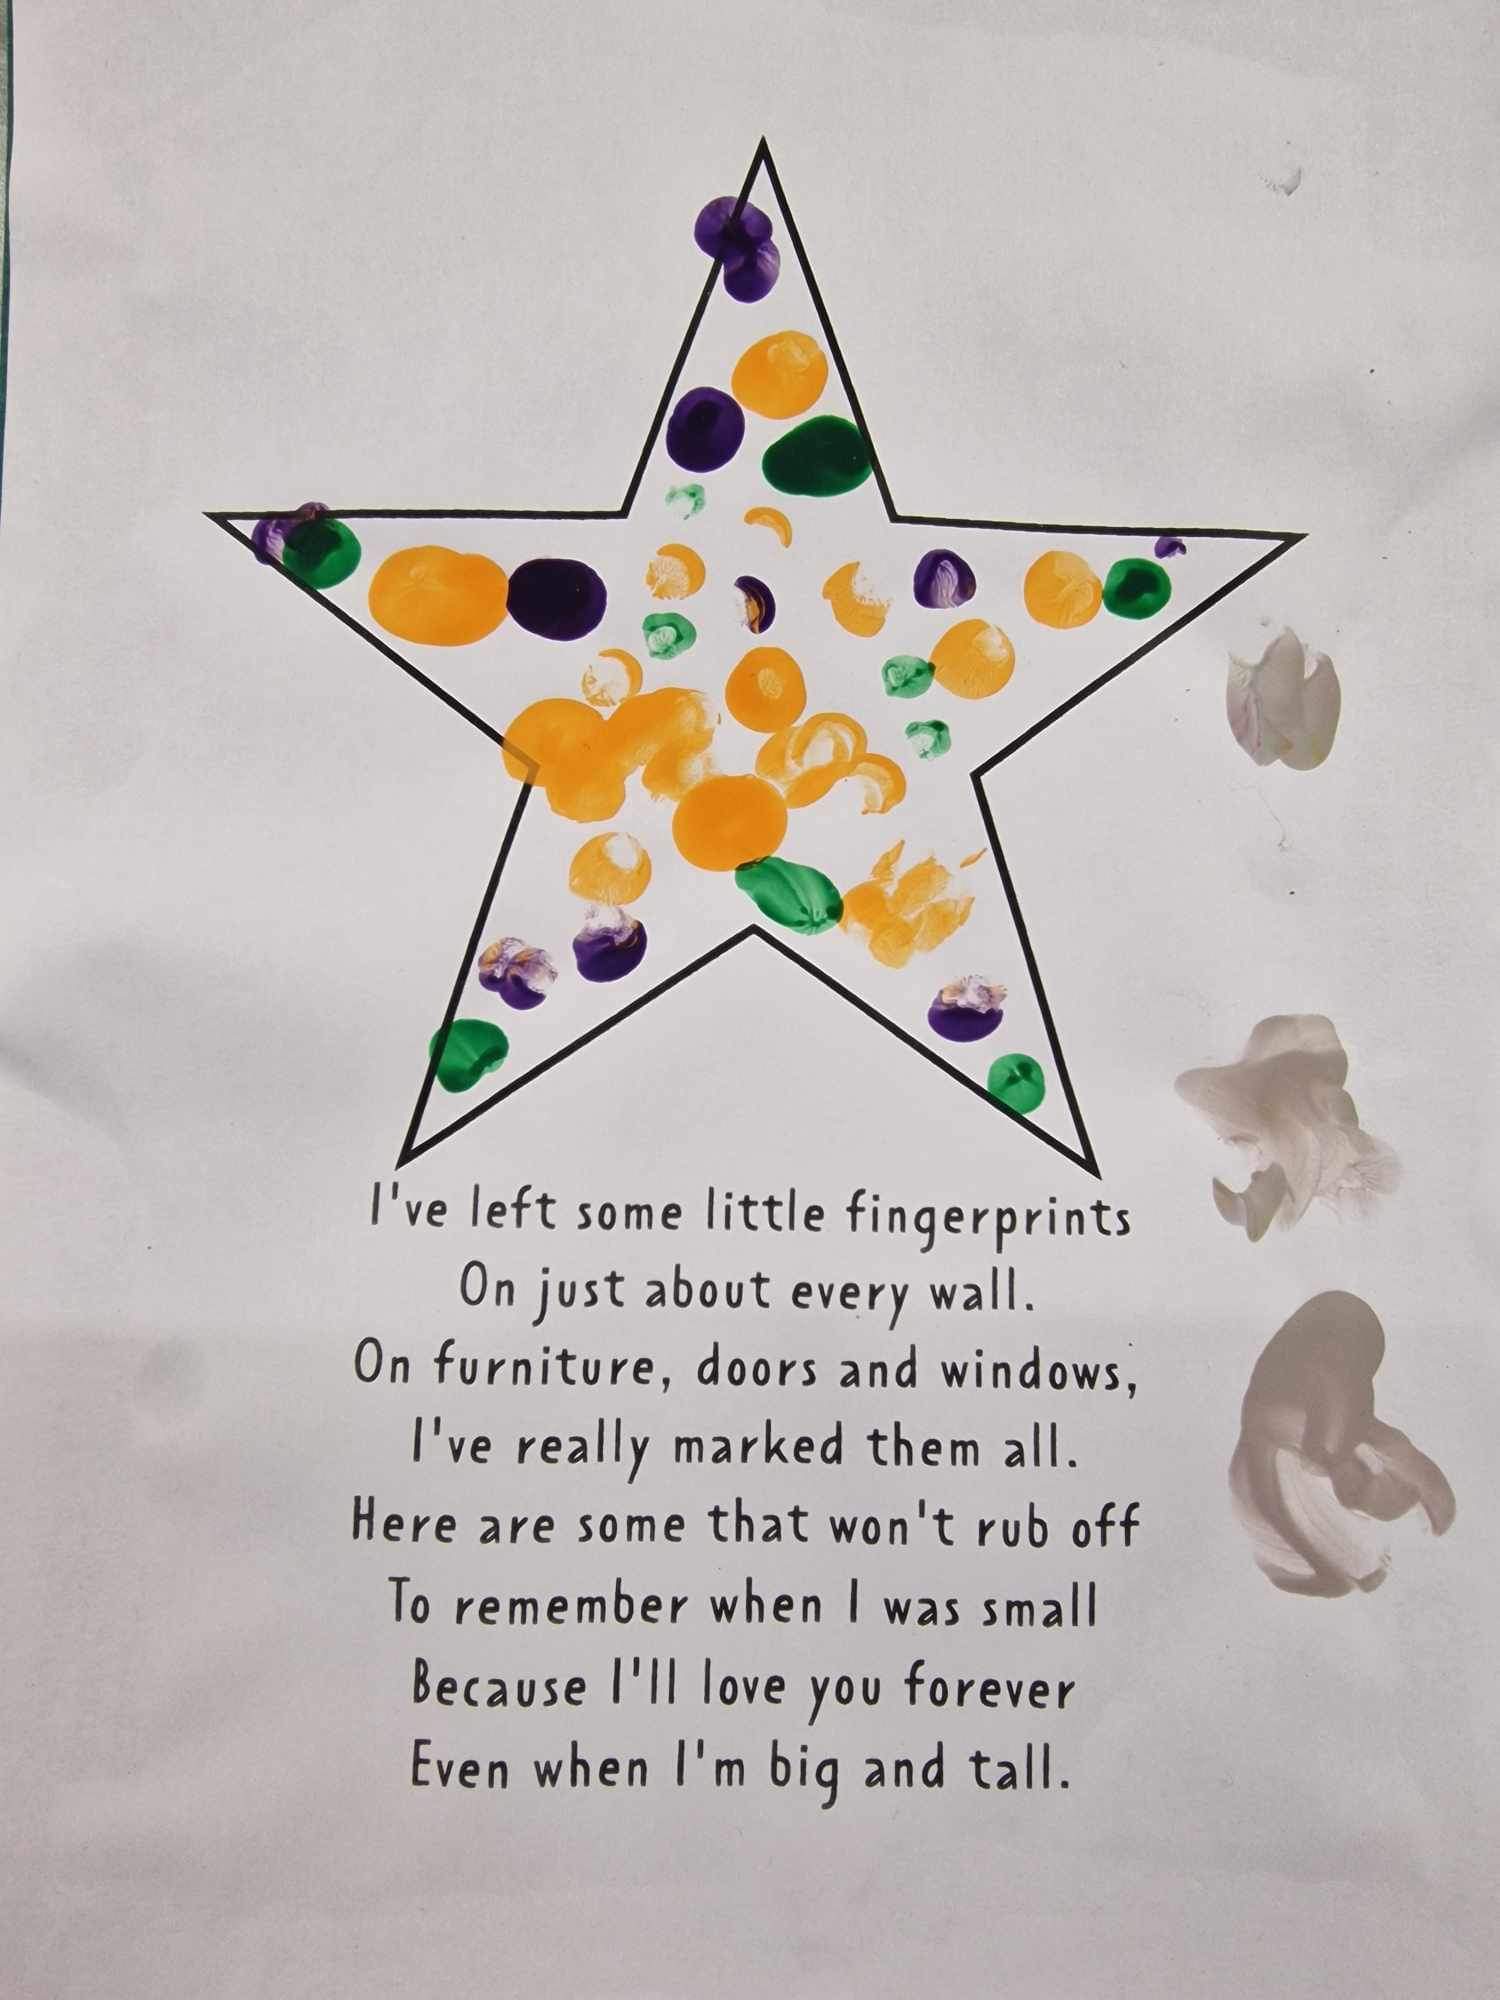 I've left some little fingerprints
On just about every wall.
On furniture, doors and windows,
I've really marked them all.
Here are some that won't rub off
To remember when I was small
Because I'll love you forever
Even when I'm big and tall.